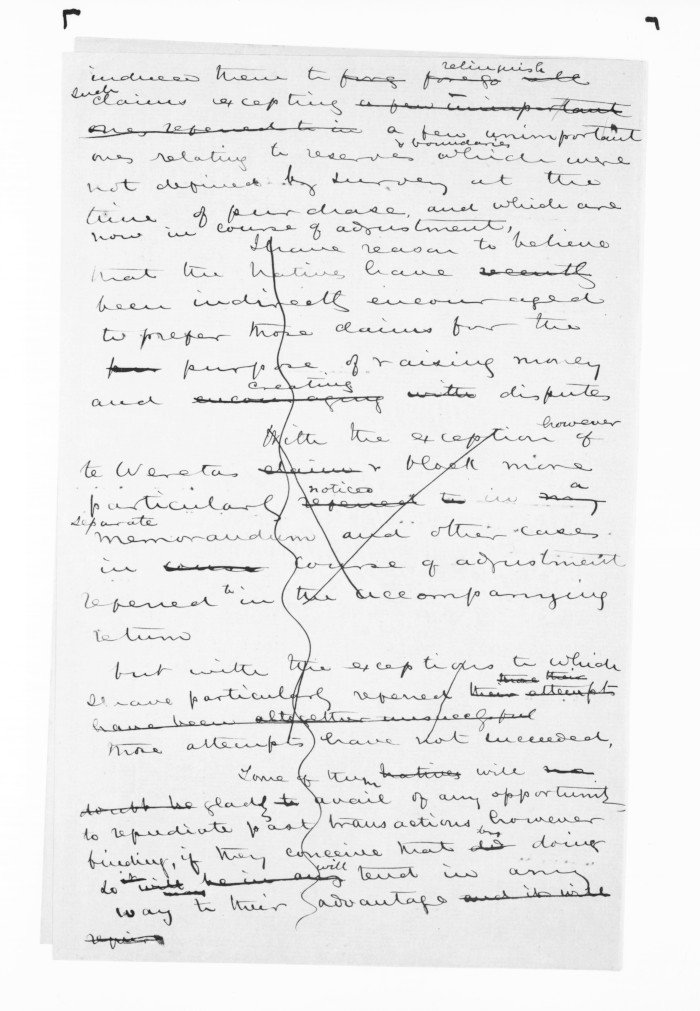 relinquish
induces them to forg forego all
such
claims excepting a few unimportant
ones referred to in a few unimportant
& boundaries
ones relating to reserves which were
not defined by survey at the
time of purchase, and which are
now in course of adjustment,
I have reason to believe
that the Natives have recently
been indirectly encouraged
to prefer those claims for the
pur purpose of raising money
creating
and encouraging with disputes
however
With the exception of
te Weretas claim & block more
notices a
particularly referred to in my
separate
memorandum and other cases
in course course of adjustment
to
referred in the accompanying
return
but with the exceptions to which
those their
I have particularly referred their attempts
have been altogether unsuccessful
those attempts have not succeeded,
Some of them natives will no
doubt be gladly to avail of any opportunity
to repudiate past transactions however
by
binding, if they conceive that so doing
it will
so will be in any tend in any
way to their advantage and it will
require